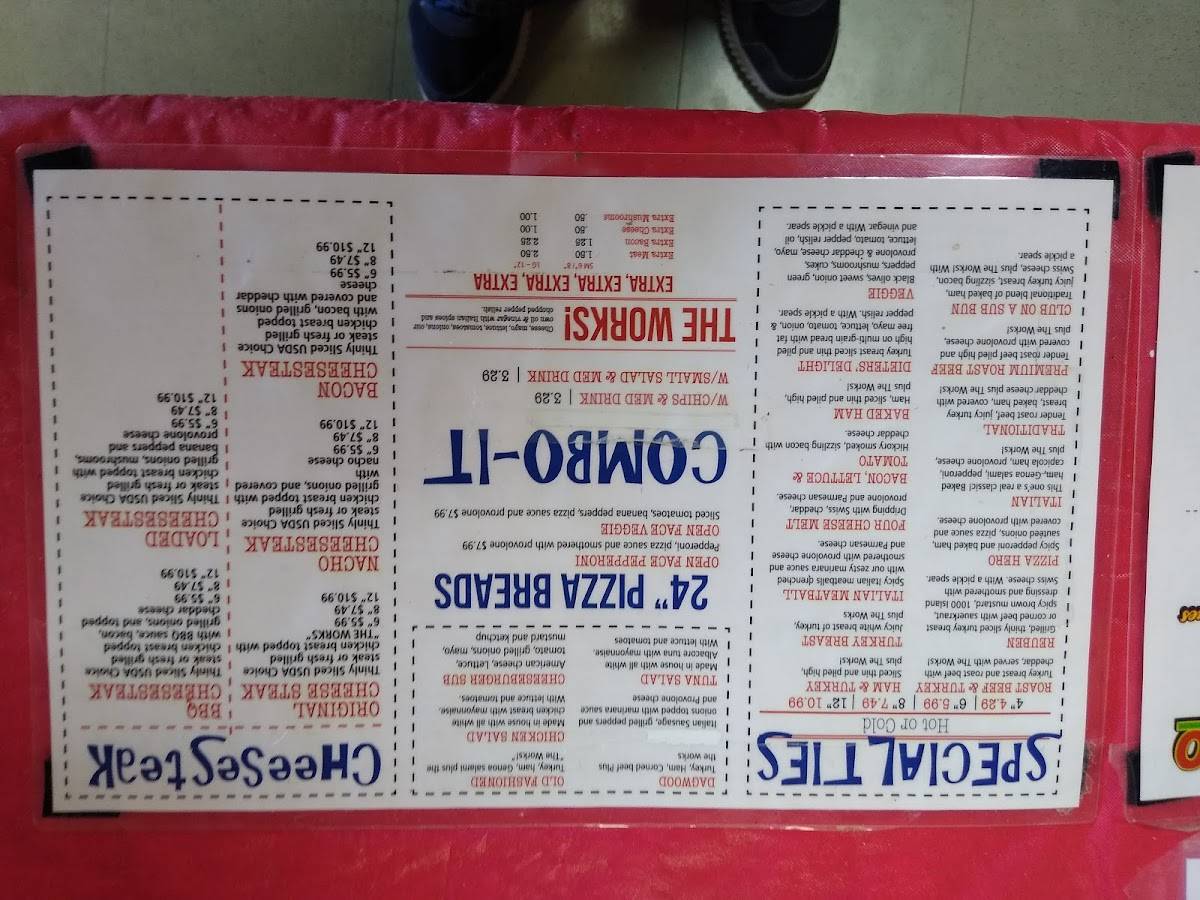 SPECIALTIES
Hot or Cold
4" 4.29 | 6" 5.99 | 8" 7.49 | 12" 10.99
ROAST BEEF & TURKEY
Turkey breast and roast beef with
cheddar, served with The Works!
REUBEN
Grilled, thinly sliced turkey breast
or corned beef with sauerkraut,
spicy brown mustard, 1000 Island
dressing and smothered with
Swiss cheese. With a pickle spear.
PIZZA HERO
Spicy pepperoni and baked ham,
sautéed onions, pizza sauce and
covered with provolone cheese.
ITALIAN
This one's a real classic! Baked
ham, Genoa salami, pepperoni,
capicolla ham, provolone cheese,
plus The Works!
TRADITIONAL
Tender roast beef, juicy turkey
breast, baked ham, covered with
cheddar cheese plus The Works!
PREMIUM ROAST BEEF
Tender roast beef piled high and
covered with provolone cheese,
plus The Works!
CLUB ON A SUB BUN
Traditional blend of baked ham,
juicy turkey breast, sizzling bacon,
Swiss cheese, plus The Works! With
a pickle spear.
HAM & TURKEY
Sliced thin and piled high,
plus The Works!
TURKEY BREAST
Juicy white breast of turkey,
plus The Works
ITALIAN MEATBALL
Spicy Italian meatballs drenched
with our zesty marinara sauce and
smothered with provolone cheese
and Parmesan cheese.
FOUR CHEESE MELT
Dripping with Swiss, cheddar,
provolone and Parmesan cheese.
BACON, LETTUCE &
TOMATO
Hickory smoked, sizzling bacon with
cheddar cheese.
BAKED HAM
Ham, sliced thin and piled high,
plus The Works!
DIETERS' DELIGHT
Turkey breast sliced thin and piled
high on multi-grain bread with fat
free mayo, lettuce, tomato, onion, &
pepper relish. With a pickle spear.
VEGGIE
Black olives, sweet onion, green
peppers, mushrooms, cukes,
provolone & cheddar cheese, mayo,
lettuce, tomato, pepper relish, oil
and vinegar. With a pickle spear.
DAGWOOD
Turkey, Ham, Corned beef Plus
the works
Italian Sausage, grilled peppers and
onions topped with marinara sauce
and Provolone cheese
TUNA SALAD
Made in house with all white
Albacore tuna with mayonnaise.
With lettuce and tomatoes
OLD FASHIONED
Turkey, ham, Genoa salami plus the
"The Works!"
CHICKEN SALAD
Made in house with all white
chicken breast with mayonnaise.
With lettuce and tomatoes.
CHEESEBURGER SUB
American cheese, Lettuce,
tomato, grilled onions, mayo,
mustard and ketchup
24" PIZZA BREADS
OPEN FACE PEPPERONI
Pepperoni, pizza sauce and smothered with provolone $7.99
OPEN FACE VEGGIE
Sliced tomatoes, banana peppers, pizza sauce and provolone $7.99
COMBO-IT
W/CHIPS & MED DRINK | 3.29
W/SMALL SALAD & MED DRINK | 3.29
THE WORKS!
Cheese, mayo, lettuce, tomatoes, onions, our
own oil & vinegar with Italian spices and
chopped pepper relish.
EXTRA, EXTRA, EXTRA, EXTRA
SM 6"/8" LG - 12"
Extra Meat 1.50 2.50
Extra Bacon 1.25 2.25
Extra Cheese .50 1.00
Extra Mushrooms .50 1.00
CHEESESTEAK
ORIGINAL
CHEESE STEAK
Thinly Sliced USDA Choice
steak or fresh grilled
chicken breast topped with
"THE WORKS"
6" $5.99
8" $7.49
12" $10.99
NACHO
CHEESESTEAK
Thinly Sliced USDA Choice
steak or fresh grilled
chicken breast topped with
grilled onions, and covered
with
nacho cheese
6" $5.99
8" $7.49
12" $10.99
BACON
CHEESESTEAK
Thinly Sliced USDA Choice
steak or fresh grilled
chicken breast topped
with bacon, grilled onions
and covered with cheddar
cheese
6" $5.99
8" $7.49
12" $10.99
BBQ
CHEESESTEAK
Thinly Sliced USDA Choice
steak or fresh grilled
chicken breast topped
with BBQ sauce, bacon,
grilled onions, and topped
cheddar cheese
6" $5.99
8" $7.49
12" $10.99
LOADED
CHEESESTEAK
Thinly Sliced USDA Choice
steak or fresh grilled
chicken breast topped with
grilled onions, mushrooms,
banana peppers and
provolone cheese
6" $5.99
8" $7.49
12" $10.99